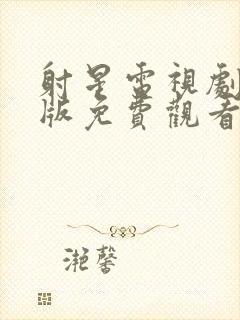 射星雷視劇
版免費觀看
滟馨